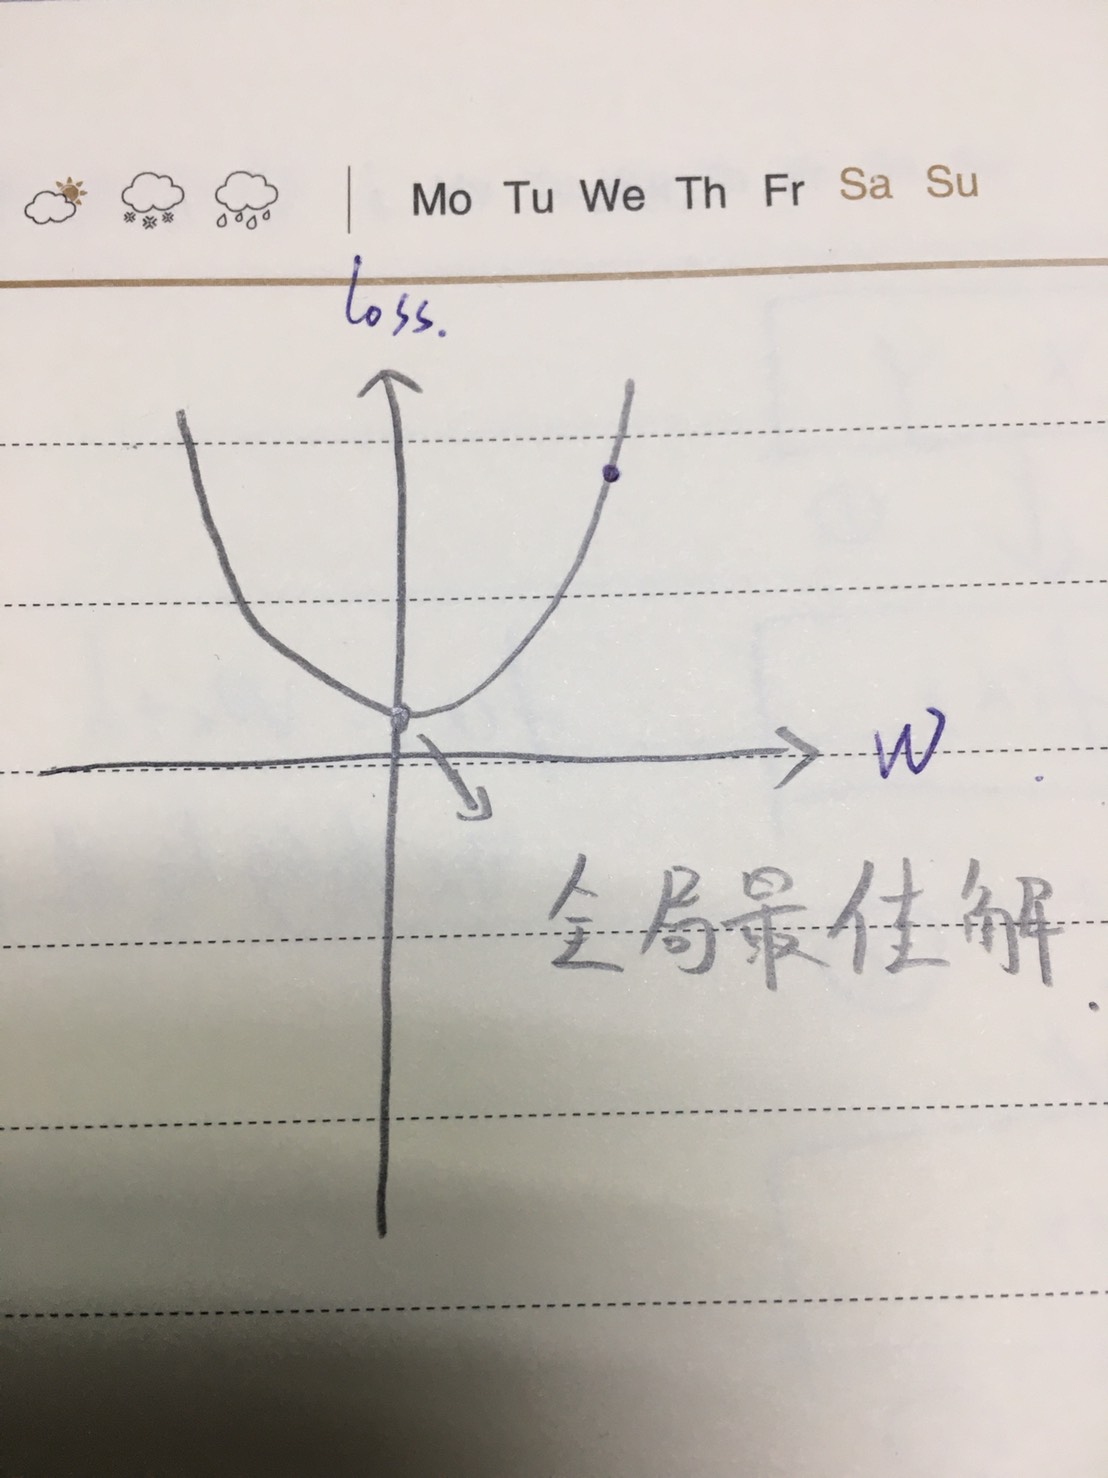 Mo Tu We Th Fr Sa Su
loss.
W
全局最佳解.